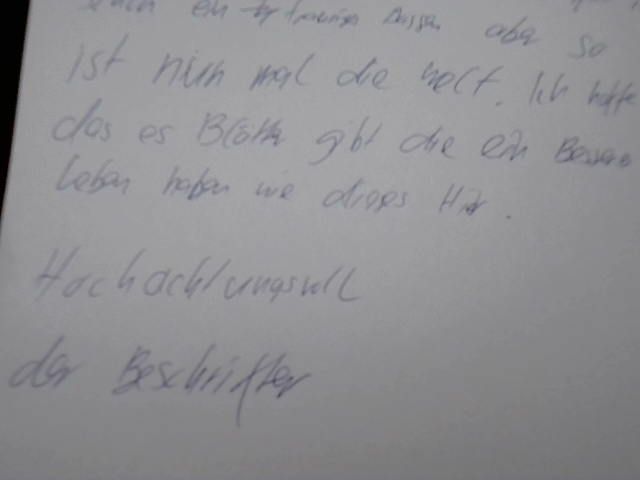 ein traurigen Dassein aber so
ist nun mal die welt. Ich hoffe
das es Blätter gibt die ein Besseres
Leben haben wie dieses Hier.
Hochachtungsvoll
der Beschrifter